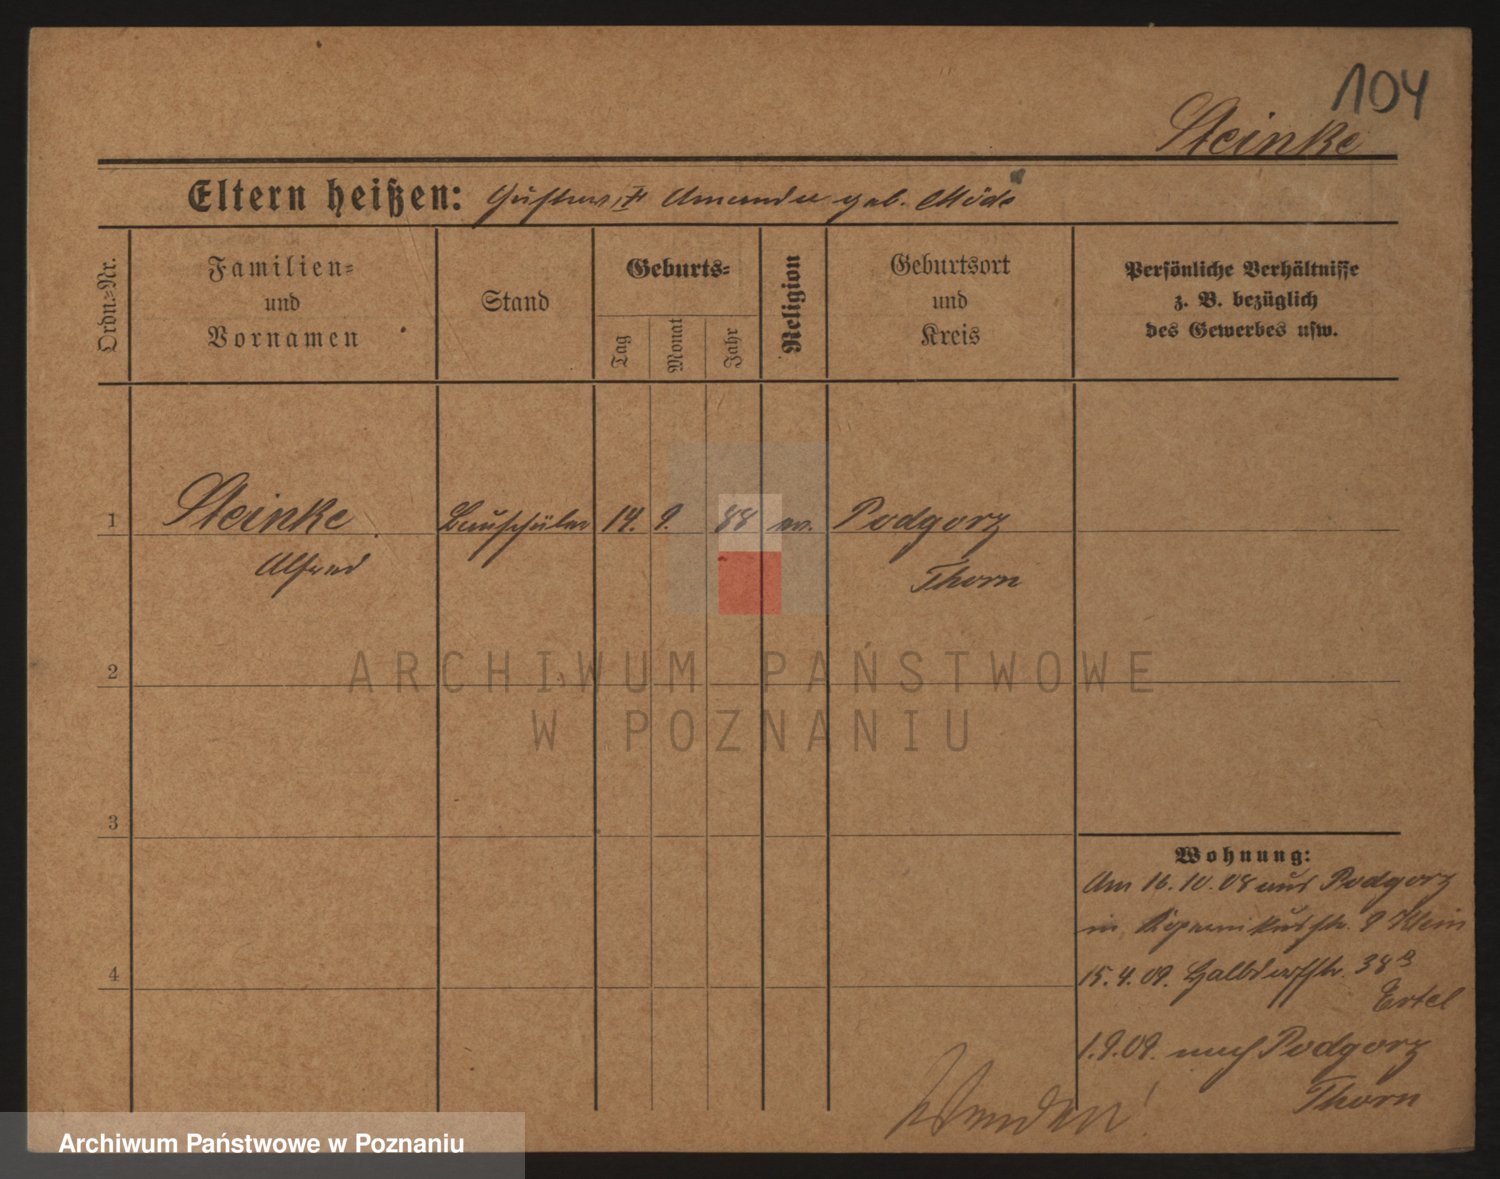 104
Steinke
Eltern heißen: Gustav u. Amanda geb. Möde
Ordn.=Nr.
Familien=
und
Vornamen
Stand
Geburts=
Tag
Monat
Jahr
Religion
Geburtsort
und
Kreis
Persönliche Verhältnisse
z. B. bezüglich
des Gewerbes usw.
1 Steinke Bauschüler 14. 9. 88 ev. Podgorz
Alfred Thorn
2
3
4
Wohnung:
Am 16.10.08 aus Podgorz
in Kopernikusstr. 9 Klein
15.4.09. Halbdorfstr. 38
Ertel
1.9.09. nach Podgorz
Thorn
Wenden!
ARCHIWUM PAŃSTWOWE
W POZNANIU
Archiwum Państwowe w Poznaniu